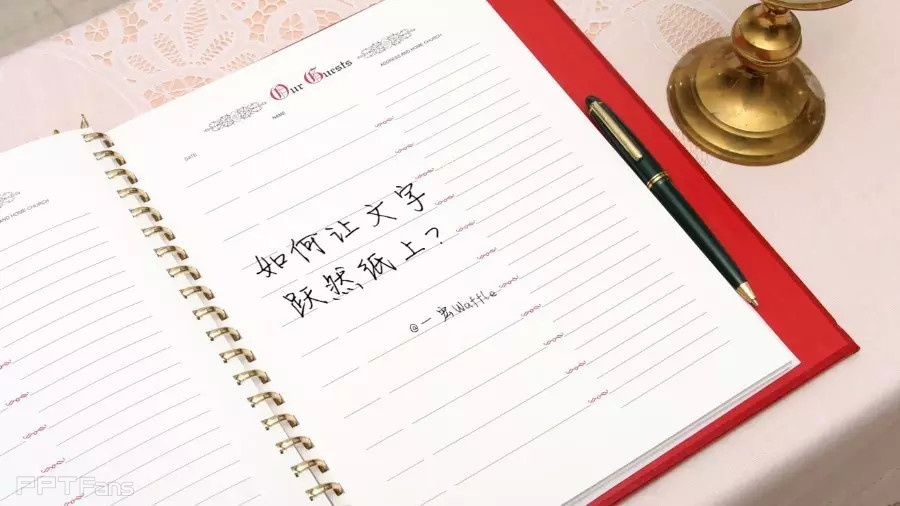 Our Guests
NAME
ADDRESS AND HOME CHURCH
DATE
AND HOME CHURCH
如何让文字
跃然纸上?
@一窝Waffle
PPTFans